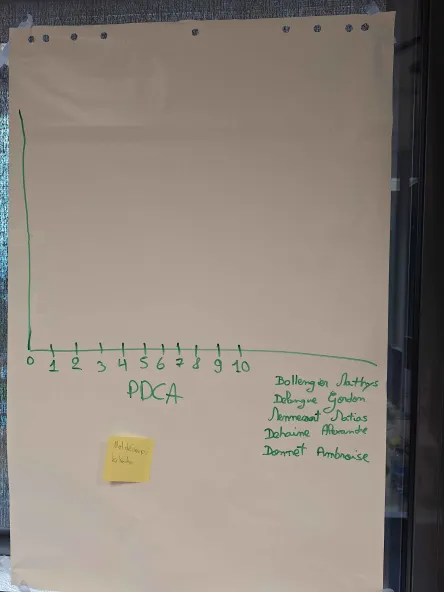 0 1 2 3 4 5 6 7 8 9 10
PDCA
Bollengier Mathys
Delangue Gordon
Matias
Dehaine Alexandre
Donnet Ambroise